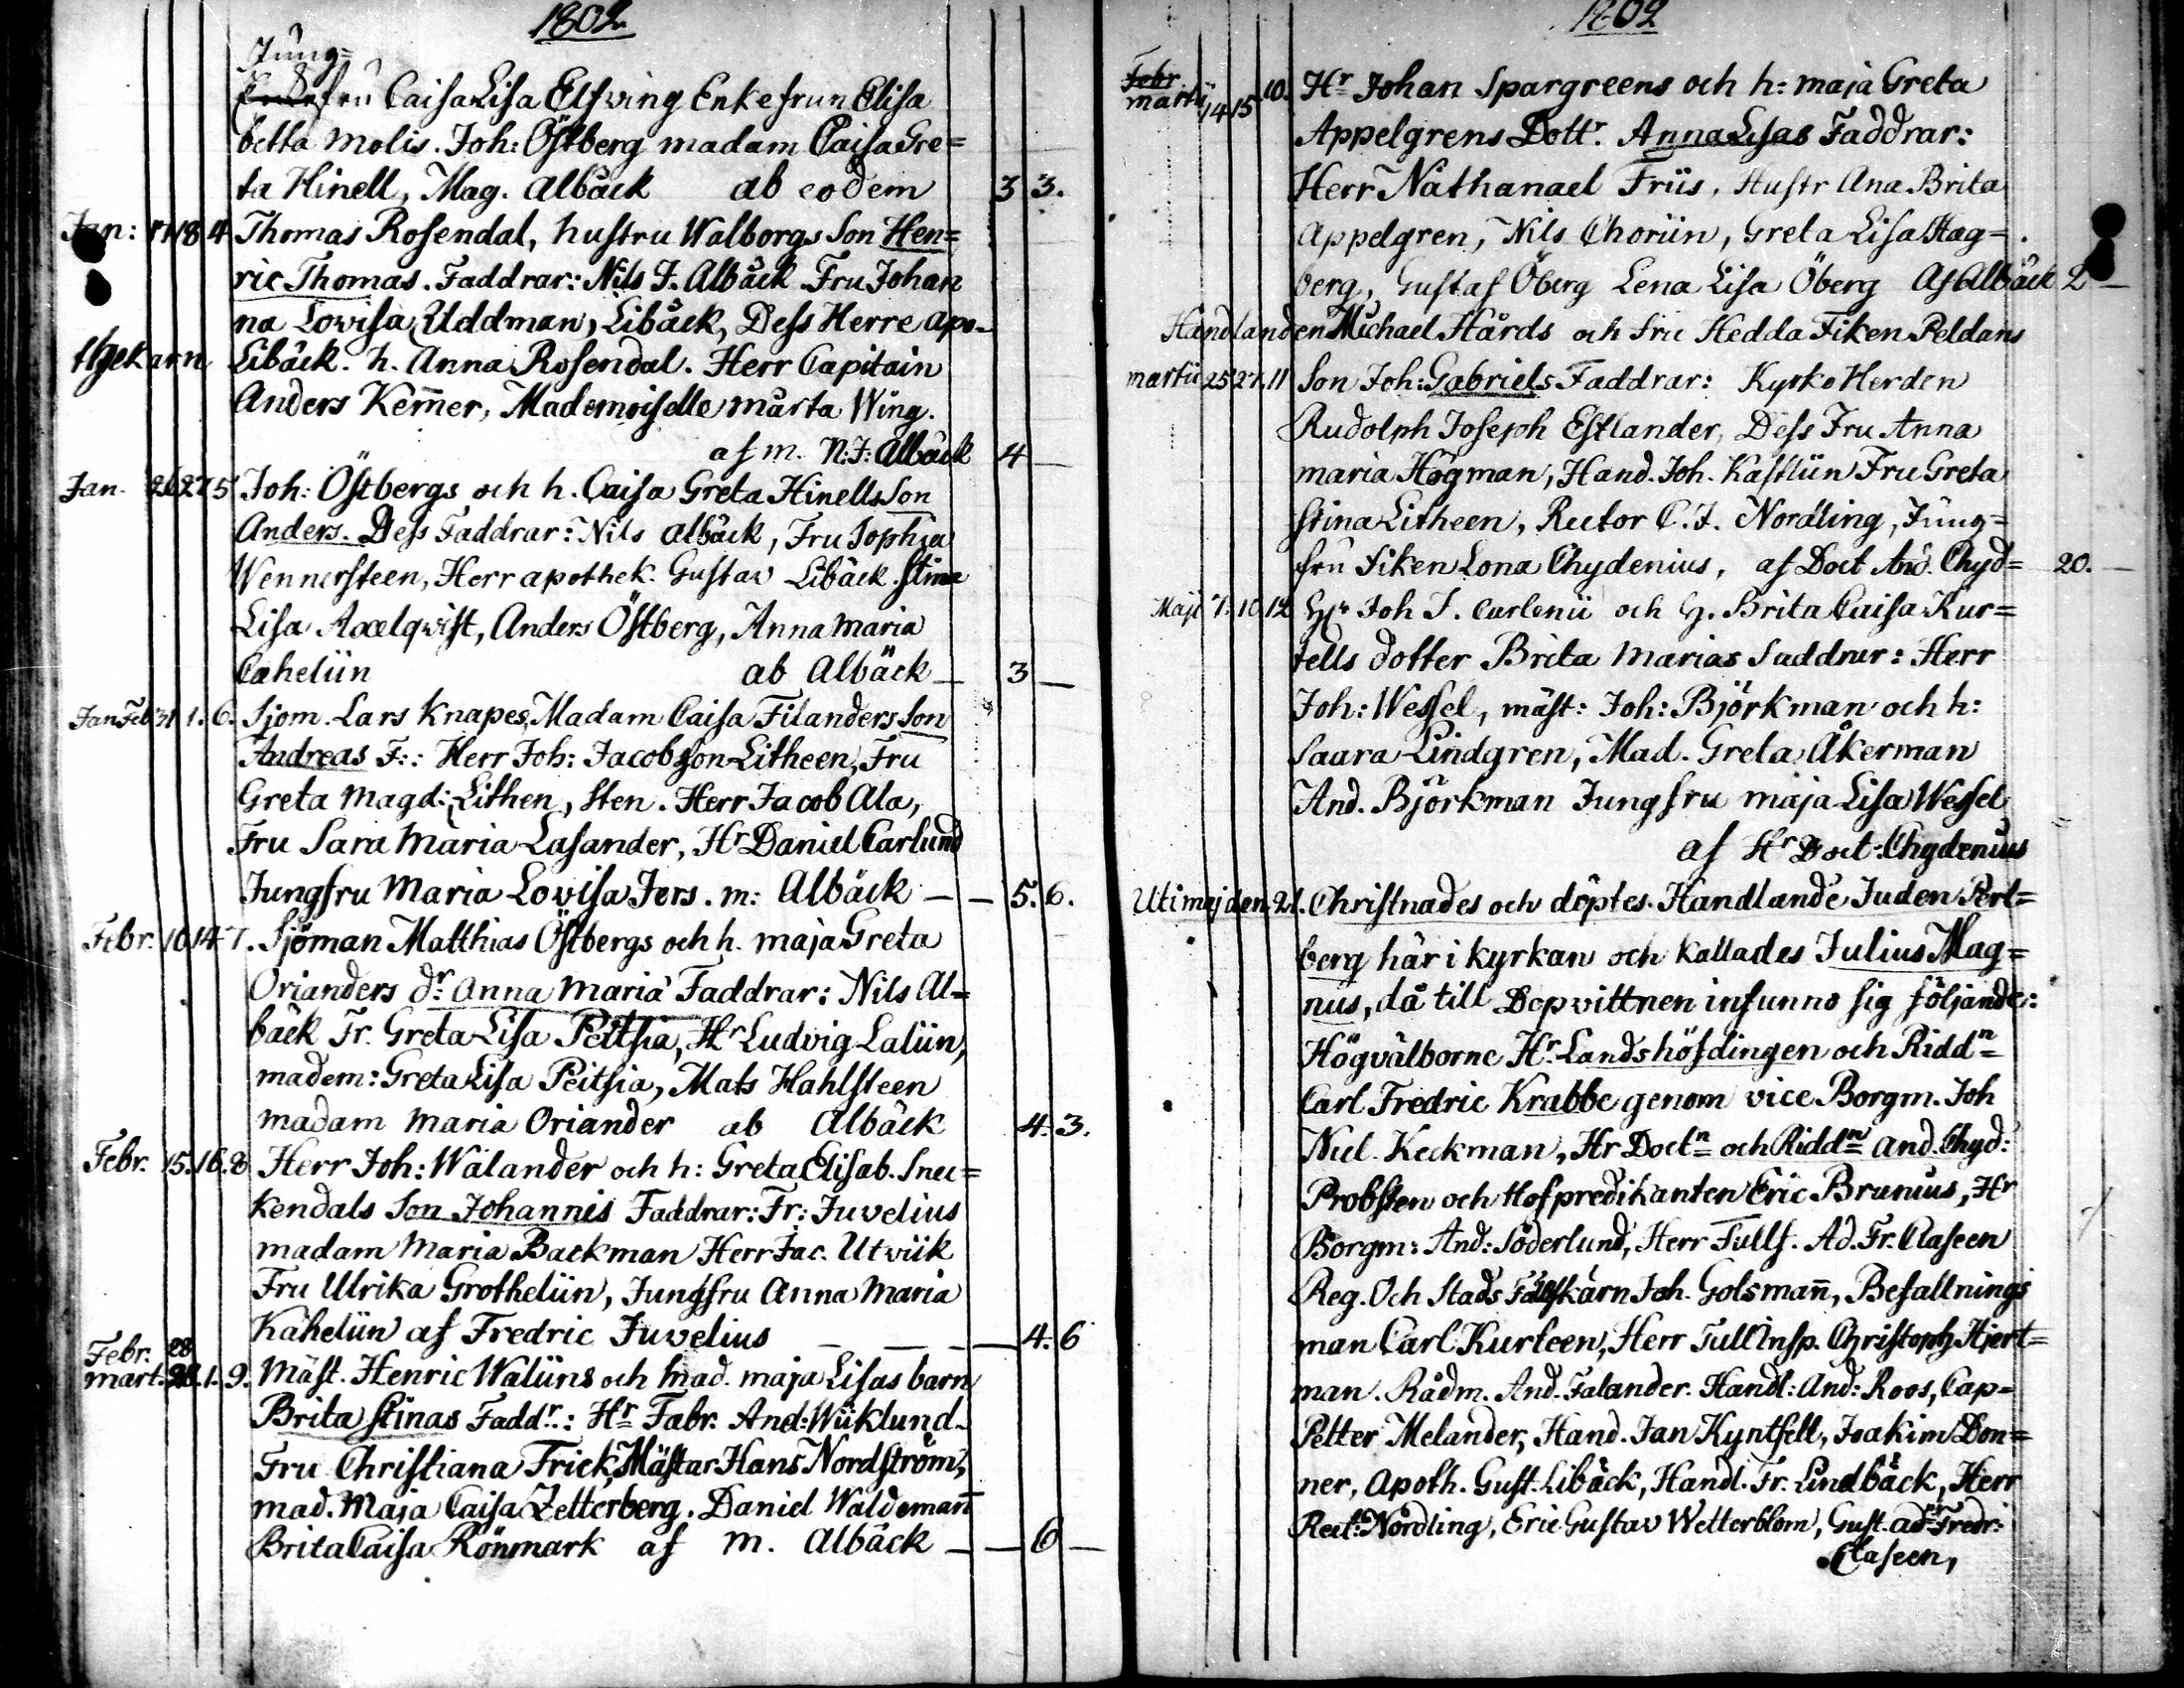 1802
Jung=
fru Caisa Lisa Elfving Enkefrun Elisa
betta Molis. Joh: Östberg madam Caisa Gre=
ta Hinell, Mag. Albäck ab eodem 3 3.
Jan: 17 18 4 Thomas Rosendal, hustru Walborgs Son Hen=
ric Thomas. Faddrar: Nils J. Albäck Fru Johan
na Lovisa Uddman, Libäck, Dess Herre Apo-
thekarn Libäck. h. Anna Rosendal. Herr Capitain
Anders Kem̅er, Mademoiselle Märta Wing.
af m. N: J: Albäck 4 —
Jan. 26 27 5 Joh: Östbergs och h. Caisa Greta Hinells Son
Anders. Dess Faddrar: Nils Albäck, Fru Sophia
Wennersteen, Herr apothek. Gustav Libäck. Stina
Lisa Axelqwist, Anders Östberg, Anna Maria
Caheliin ab Albäck — 3 —
Jan Feb 31 1. 6. Sjom. Lars Knapes, Madam Caisa Filanders Son
Andreas F:: Herr Joh: Jacobsson Litheen, Fru
Greta Magd: Lithen, Sten. Herr Jacob Ala,
Fru Sara Maria Lasander, Hr Daniel Carlund
Jungfru Maria Lovisa Fers. m: Albäck — — 5. 6.
Febr. 10 14 7. Sjöman Matthias Östbergs och h. maja Greta
Orianders dr: Anna Maria Faddrar: Nils Al=
bäck Fr. Greta Lisa Peitsia, Hr Ludvig Laliin,
madem: Greta Lisa Peitsia, Mats Hahlsteen
madam Maria Oriander ab Albäck 4. 3.
Febr. 15. 16. 8 Herr Joh: Wälander och h: Greta Elisab. Snec=
kendals Son Johannis Faddrar: Fr: Juvelius
madam Maria Backman Herr Jac. Utviik
Fru Ulrika Grotheliin, Jungfru Anna Maria
Kaheliin af Fredric Juvelius — — — 4. 6
Febr. 28
mart. 28. 1. 9. Mäst. Henric Waliins och mad. maja Lisas barn
Brita Stinas Faddr.: Hr Fabr. And: Wiiklund.
Fru Christiana Frick, Mästar Hans Nordström,
mad. Maja Caisa Zetterberg. Daniel Waldeman̅
Brita Caisa Rönmark af M. Albäck — — 6 —
1802
Febr
martii 14 15 10. Hr Johan Spargreens och h: maja Greta
Appelgrens Dottr. Anna Lisas Faddrar:
Herr Nathanael Friis, Hustr Ana Brita
Appelgren, Nils Choriin, Greta Lisa Hag=
berg, Gustaf Öberg Lena Lisa Öberg Af Albäck 2 —
Handlanden Michael Hårds och fru Hedda Fiken Peldans
martii 25 27. 11 Son Joh: Gabriels Faddrar: KyrkoHerden
Rudolph Joseph Estlander, Dess Fru Anna
maria Högman, Hand. Joh. Kastliin Fru Greta
Stina Litheen, Rector C. J. Nordling, Jung=
fru Fiken Lona Chydenius, af Doct And. Chyd= 20. —
Maji 7. 10. 12 Hr Joh J. Carlenii och H. Brita Caisa Kur=
tells dotter Brita Marias Faddrar: Herr
Joh: Wessel, mäst: Joh: Björkman och h:
Saara Lindgren, Mad. Greta Åkerman
And. Björkman Jungfru maja Lisa Wessel
af Hr Doct: Chydenius
Uti maj den 21. Christnades och döptes Handlande Juden Perl=
berg här i kyrkan och kallades Julius Mag=
nus, då till Dopvittnen infunno sig följande:
Högvälborne Hr. Landshöfdingen och Riddn
Carl Fredric Krabbe genom vice Borgm. Joh
Niel. Keckman, Hr Doctn och Riddn And. Chyd:
Probsten och Hofpredikanten Eric Brunius, Hr
Borgm: And: Söderlund, Herr Tullf. Ad. Fr. Claseen
Reg. Och Stads Fältskärn Joh. Golsman̅, Befallnings
man Carl Kurteen, Herr Tull Insp. Christoph Hjert=
man. Rådm. And. Falander. Handl: And: Roos, Cap=
Petter Melander, Hand. Jan Kyntsell, Joakim Don=
ner, Apoth. Gust. Libäck, Handl. Fr. Lindbäck, Herr
Rect: Nordling, Eric Gustav Wetterblom, Gust. ad: Fredr:
Claseen,